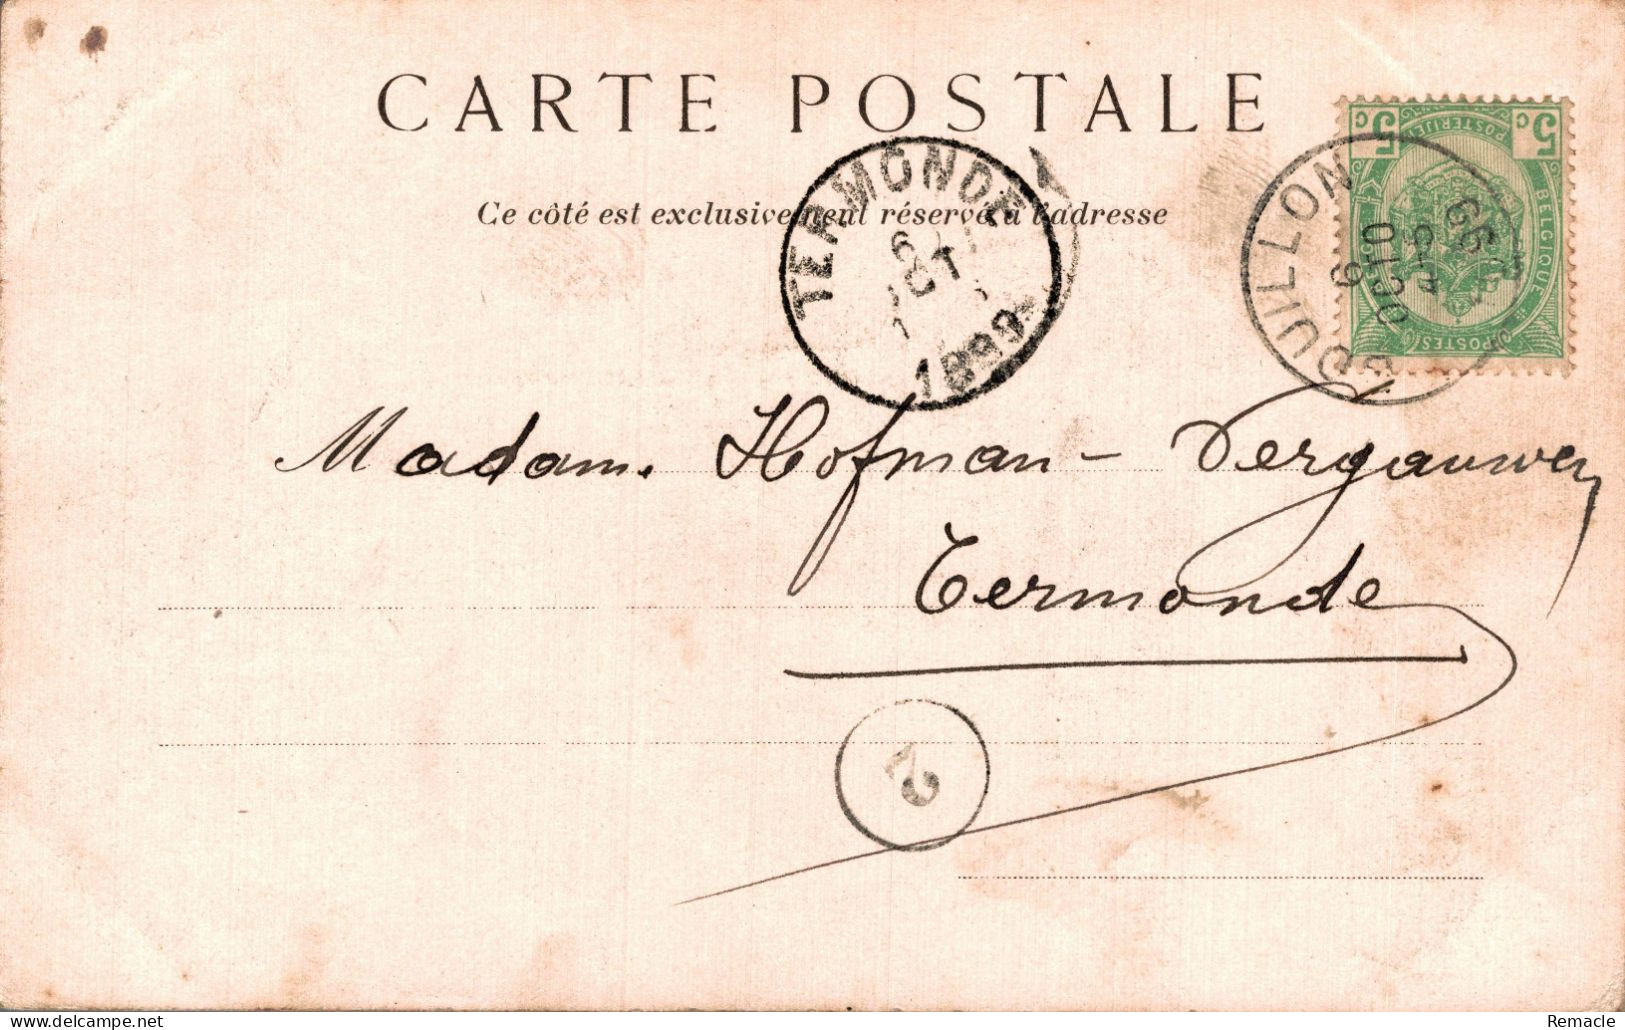 CARTE POSTALE
Ce côté est exclusivement réservé à l'adresse
TERMONDE
6
OCT
1899
BOUILLON
6
OCTO
4-5
99
5 c
5 c
POSTERIJEN
BELGIQUE
POSTES
Madame Hofman-Vergauwen
Termonde
2
Remacle